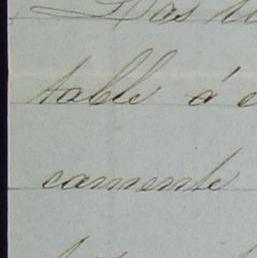 Das
table á
camente